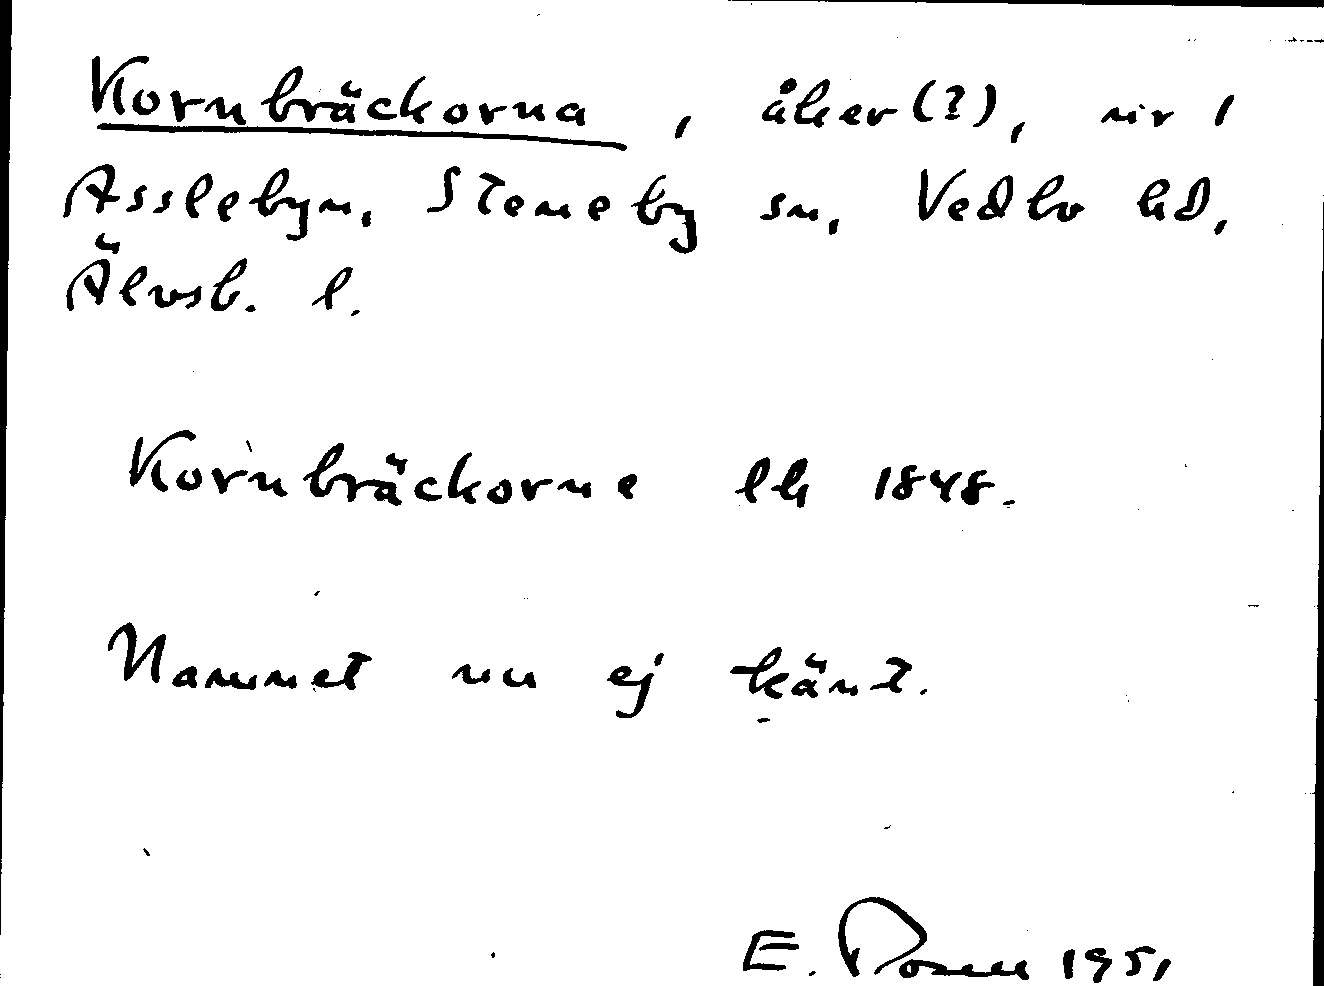 Kornbräckorna, åker(?), nr 1
Asslebyn, Steneby sn, Vedbo hd,
Älvsb. l.
Kornbräckorne lh 1848.
Namnet nu ej känt.
E. Rosell 1951